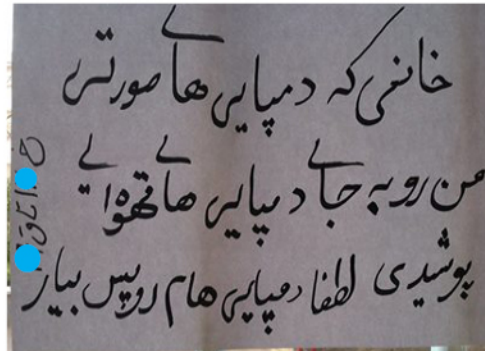 خانمی که دمپایی های صورتی
من رو به جای دمپایی های قهوه ای
پوشیدی لطفا دمپایی هام رو پس بیار
اتاق